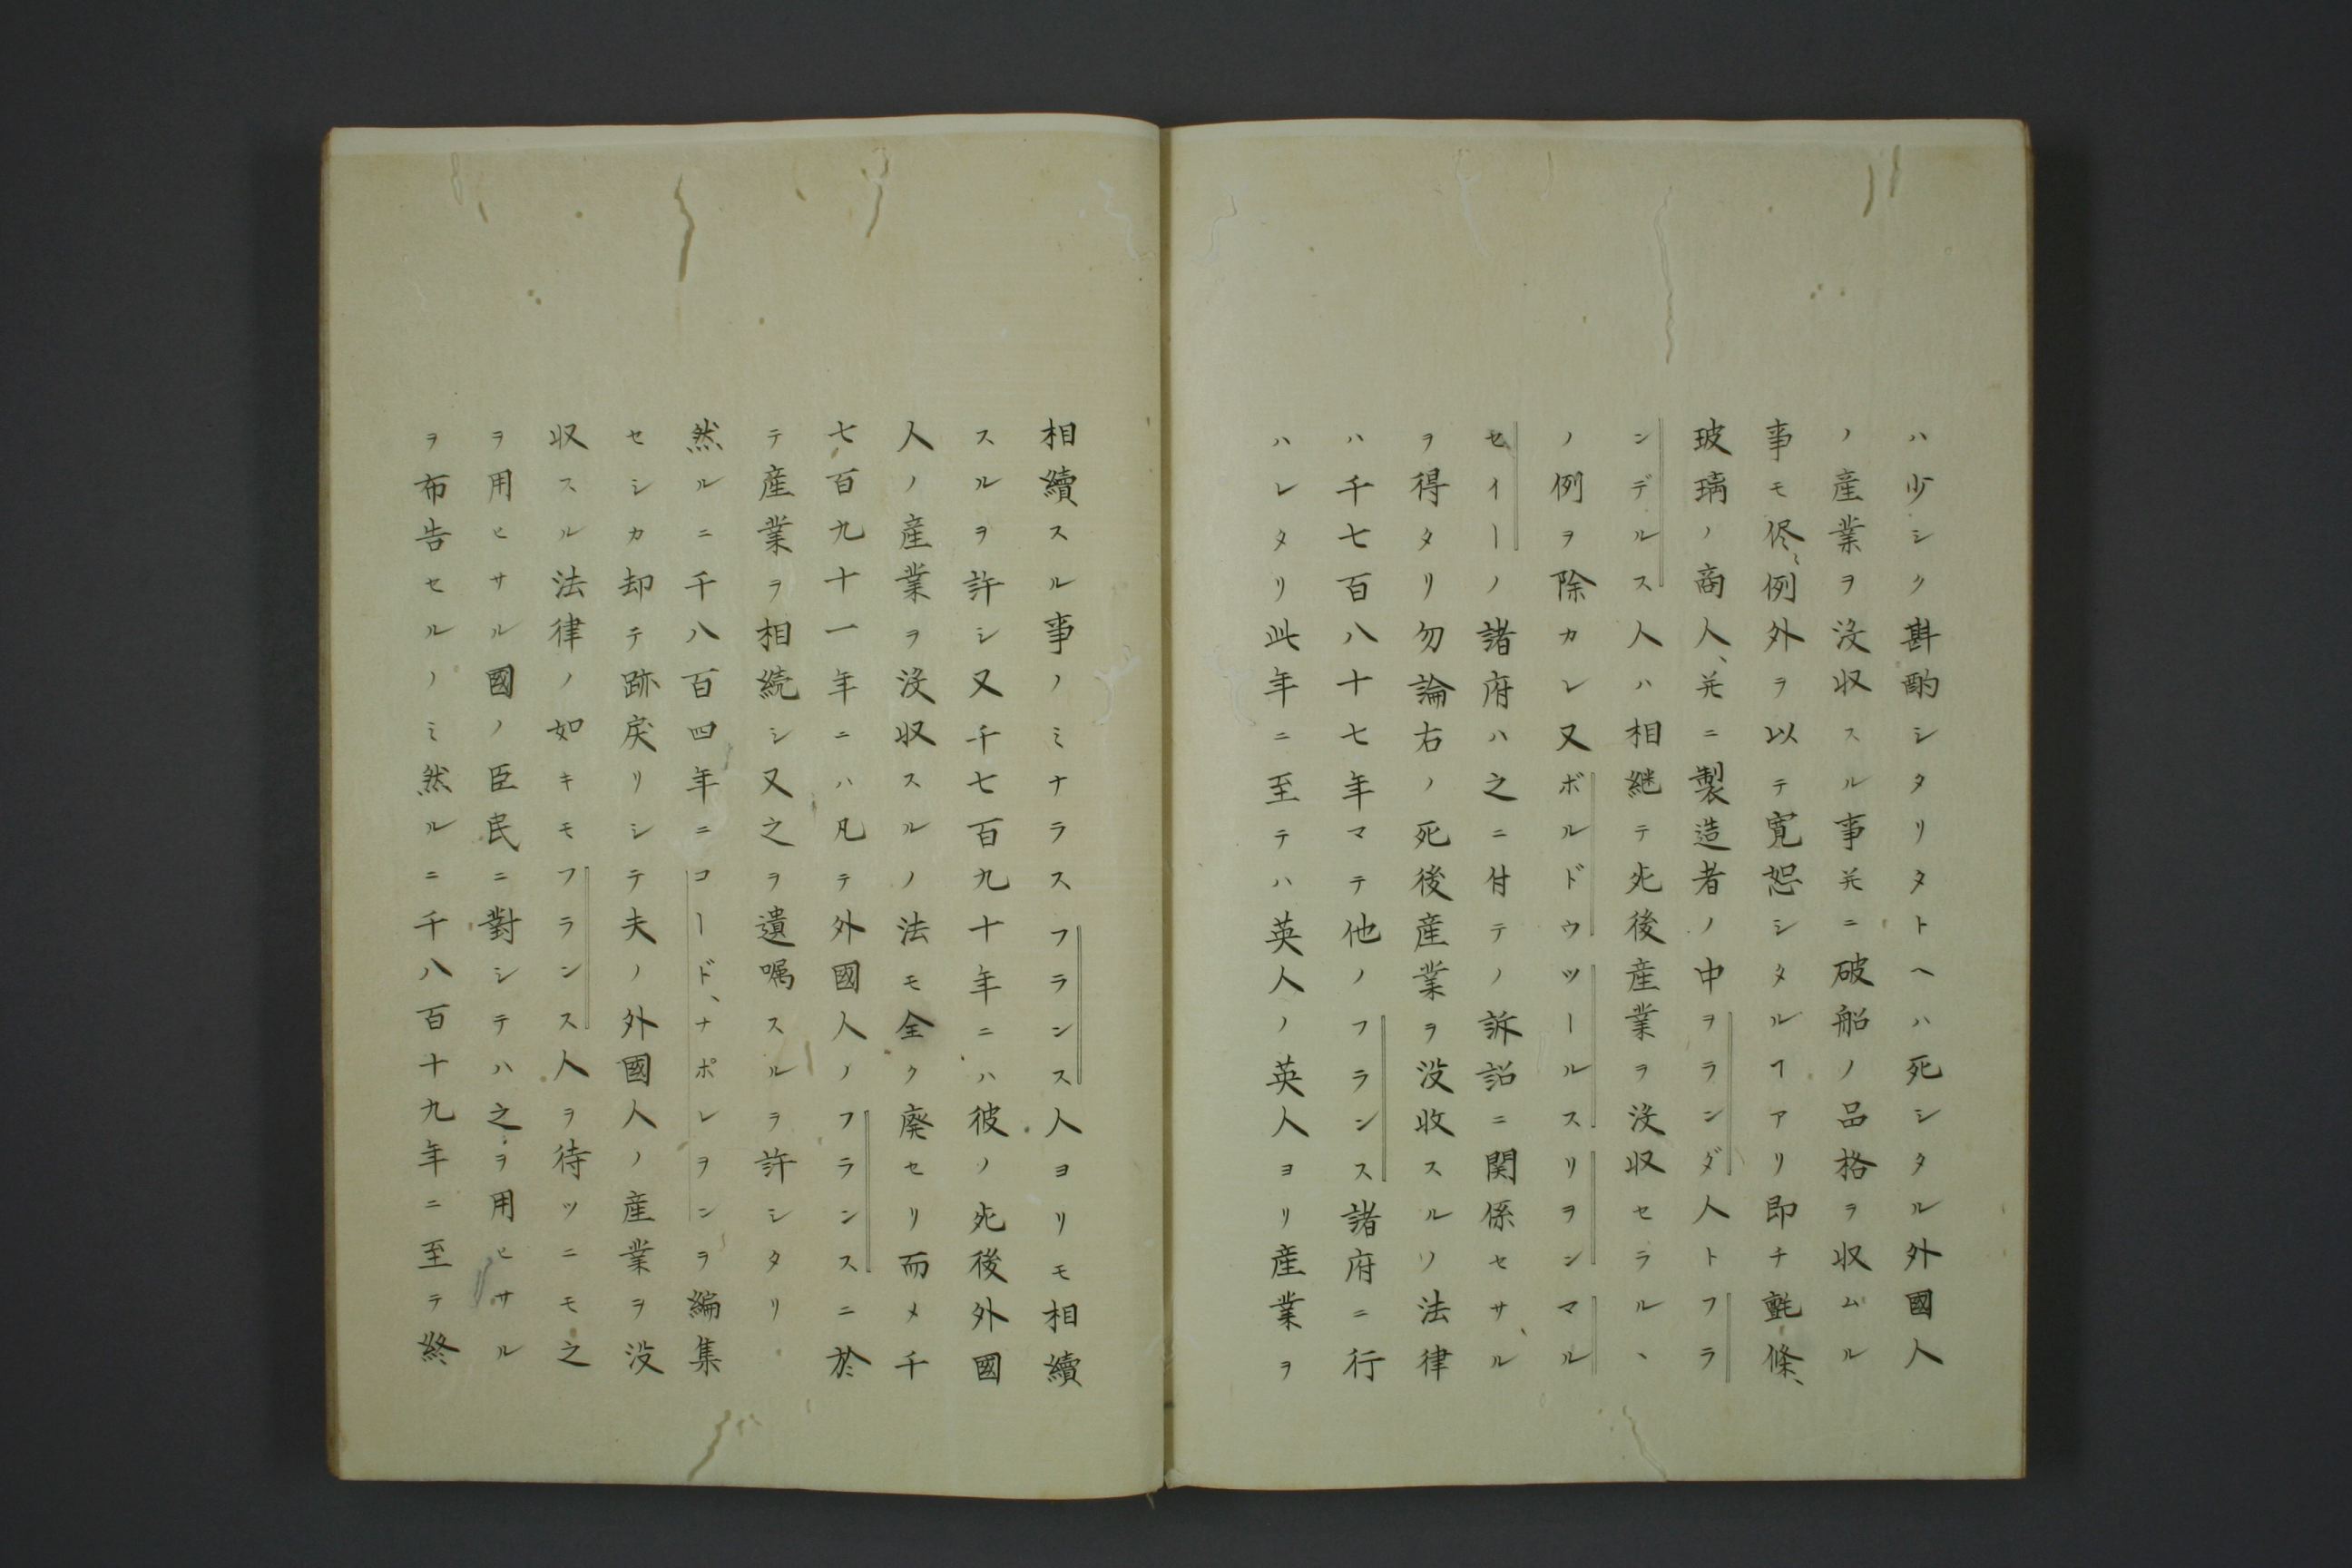 ハ少シク斟酌シタリタトヘハ死シタル外國人
ノ産業ヲ没収スル事并ニ破船ノ品格ヲ収ムル
事モ侭〻例外ヲ以テ寛恕シタルヿアリ即チ氈條、
玻璃ノ商人、并ニ製造者ノ中ヲランダ人トフラ
ンデルス人ハ相継テ死後産業ヲ没収セラルヽ
ノ例ヲ除カレ又ボルドウツールスリヲンマル
セイーノ諸府ハ之ニ付テノ訴詔ニ関係セサル
ヲ得タリ勿論右ノ死後産業ヲ没收スルノ法律
ハ千七百八十七年マテ他ノフランス諸府ニ行
ハレタリ此年ニ至テハ英人ノ英人ヨリ産業ヲ
相續スル事ノミナラスフランス人ヨリモ相續
スルヲ許シ又千七百九十年ニハ彼ノ死後外國
人ノ産業ヲ没収スルノ法モ全ク廃セリ而メ千
七百九十一年ニハ凡テ外國人ノフランスニ於
テ産業ヲ相続シ又之ヲ遺嘱スルヲ許シタリ
然ルニ千八百四年ニコード、ナポレヲンヲ編集
セシカ却テ跡戻リシテ夫ノ外國人ノ産業ヲ没
収スル法律ノ如キモフランス人ヲ待ツニモ之
ヲ用ヒサル國ノ臣民ニ對シテハ之ヲ用ヒサル
ヲ布告セルノミ然ルニ千八百十九年ニ至テ終